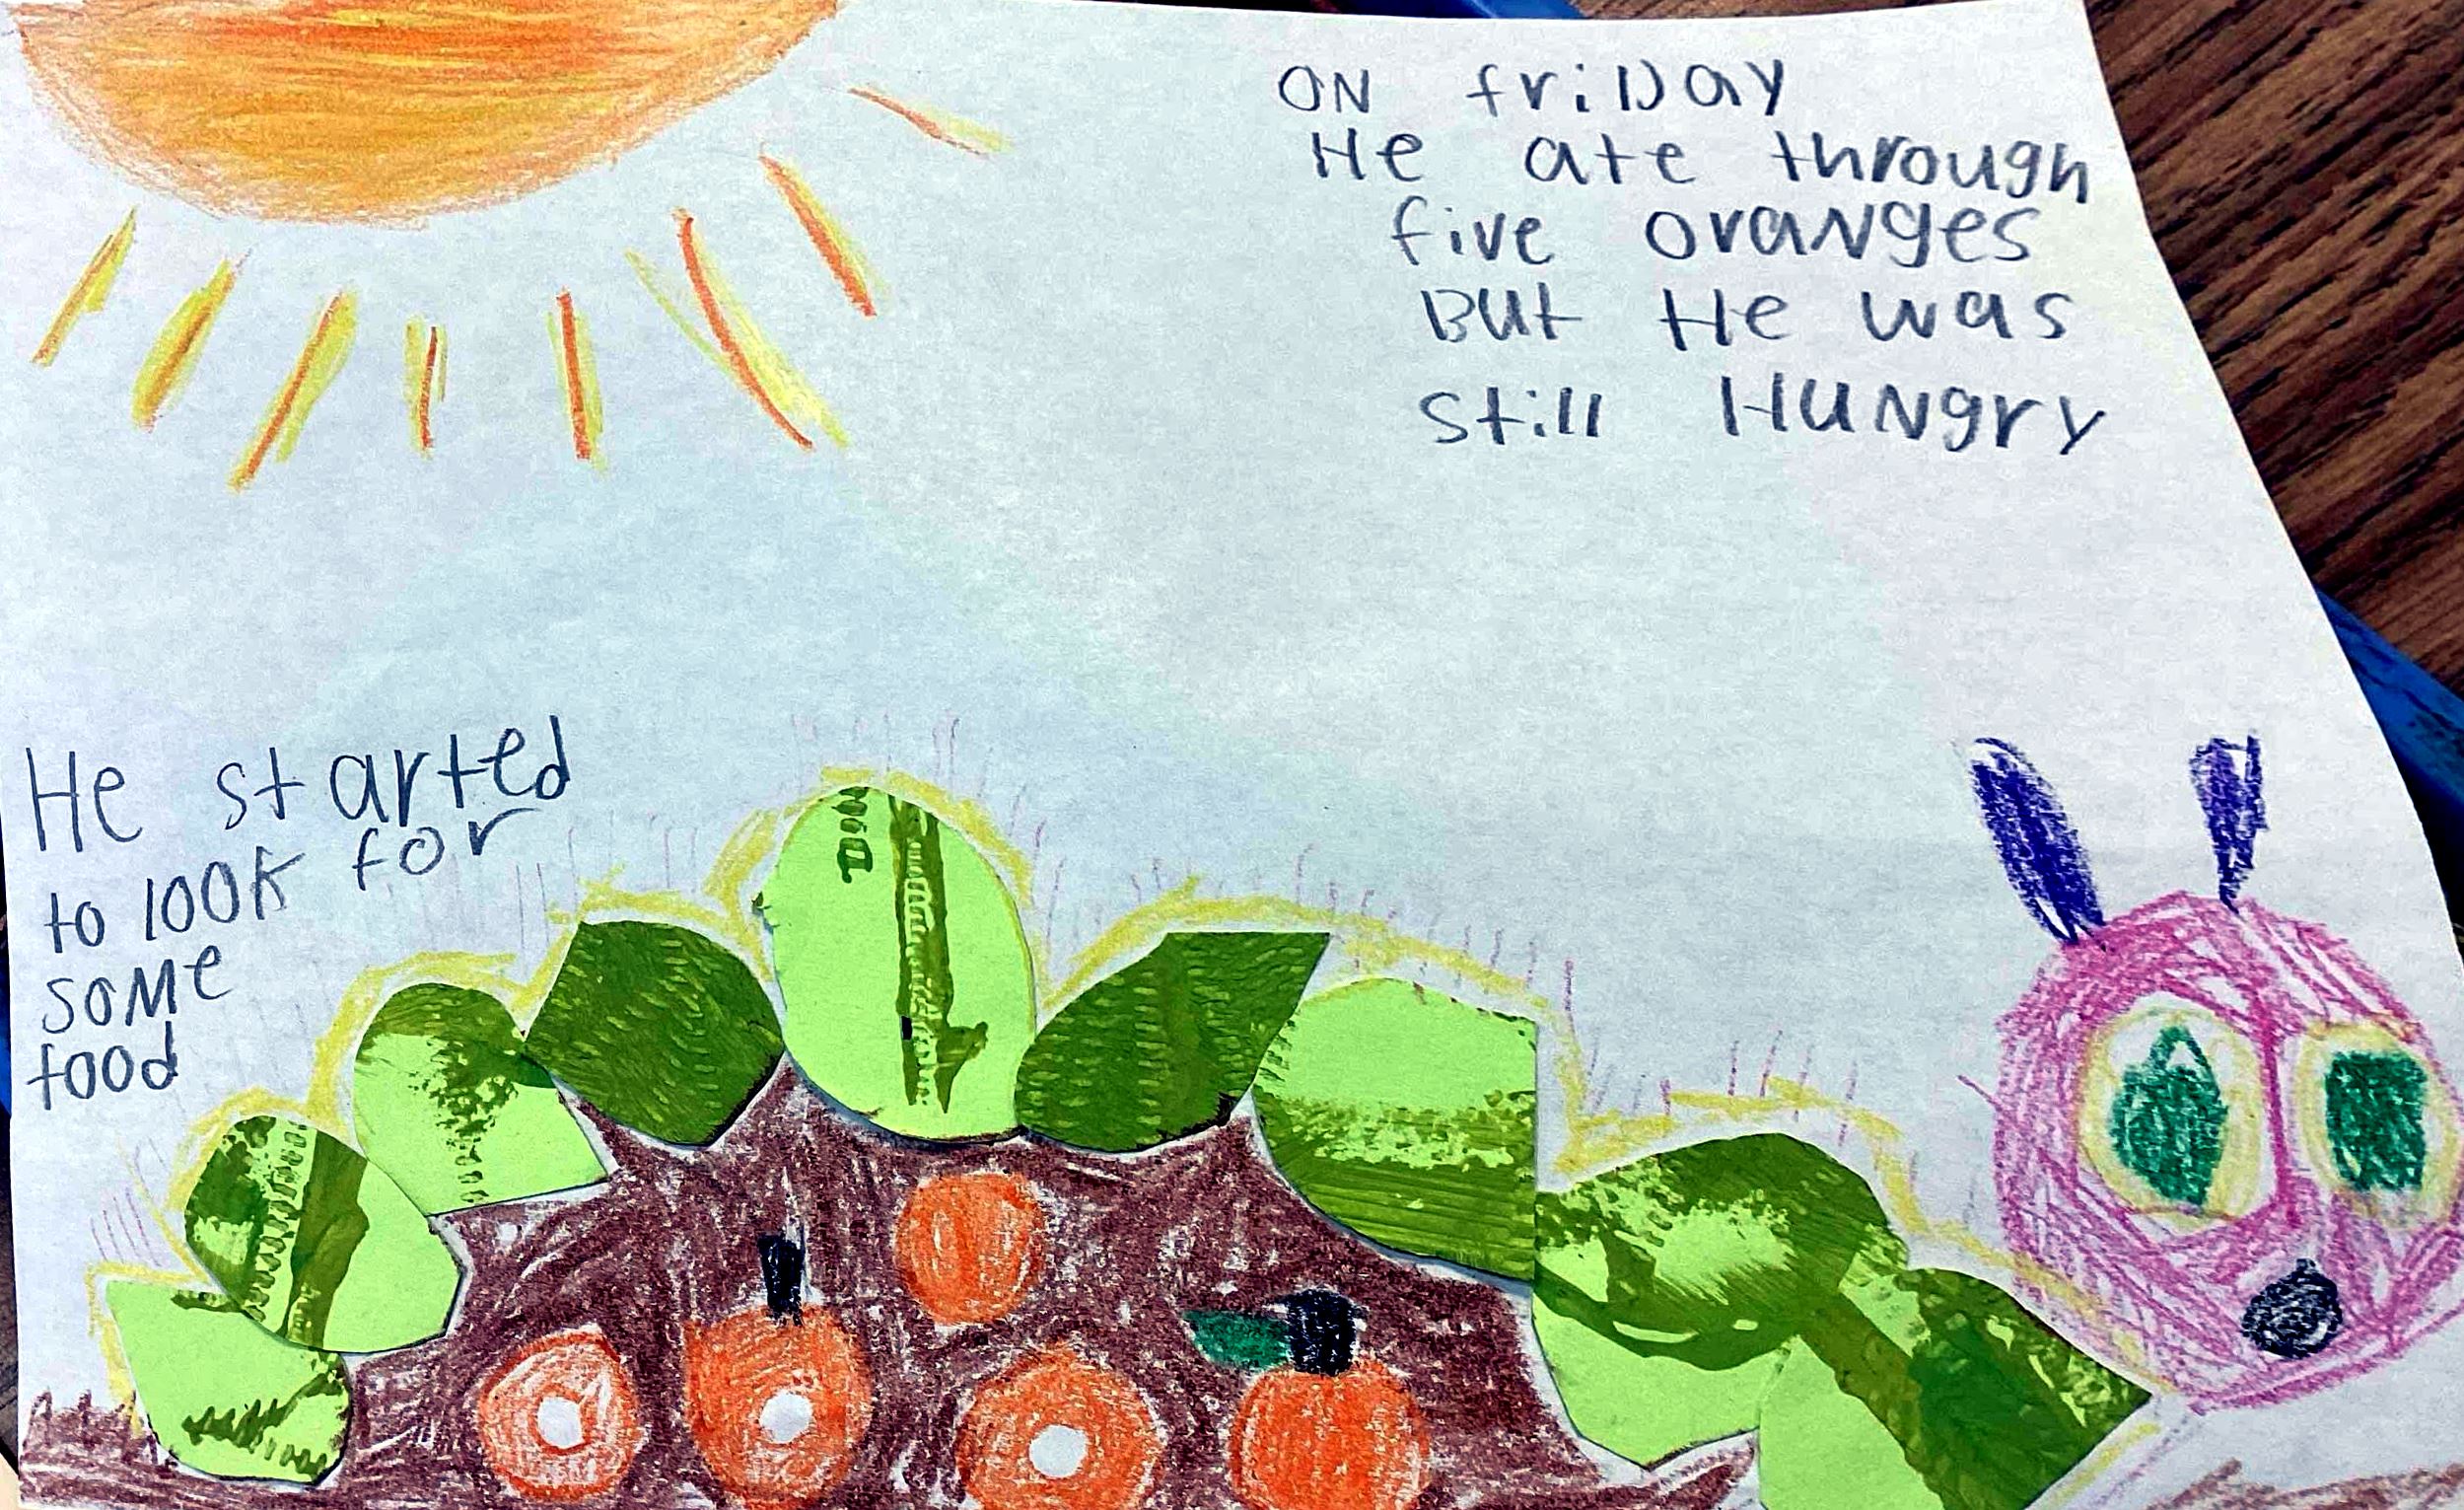 ON friDay
He ate through
five oraNges
But He was
Still HUNgry
He started
to look for
soMe
food